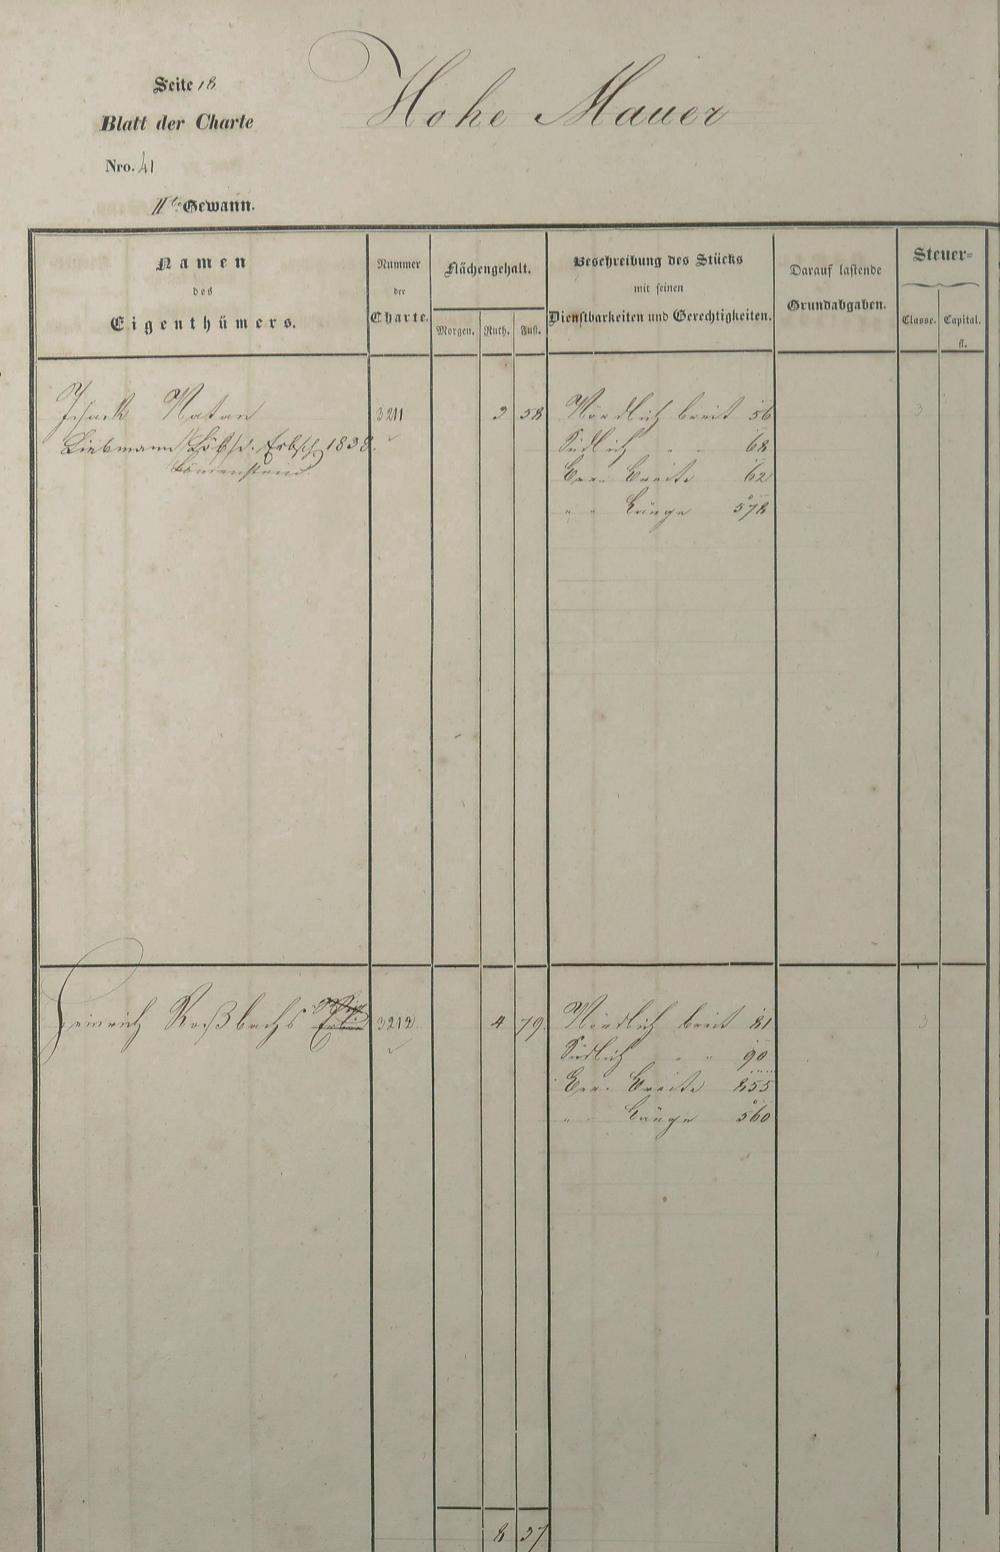 Seite 18
Hohe Mauer
Blatt der Charte
Nro. 41
IIte Gewann.
Namen des Eigenthümers.
Nummer der Charte.
Flächengehalt.
Morgen. Ruth. Fuß.
Beschreibung des Stücks mit seinen Dienstbarkeiten und Gerechtigkeiten.
Darauf lastende Grundabgaben.
Steuer=
Classe. Capital. fl.
Isaack Natan 3211 3 58 Nördlich breit 56 3
Liebmann Löbsr. Erbsch. 1838. Südlich " " 68
Löwenstein Cor. Breite 62
" " Länge 578
Heinrich Roßbachs 3212. 4 79. Nördlich breit 81 3
Südlich " " 90
Cor. Breite 855
" Länge 560
8 37